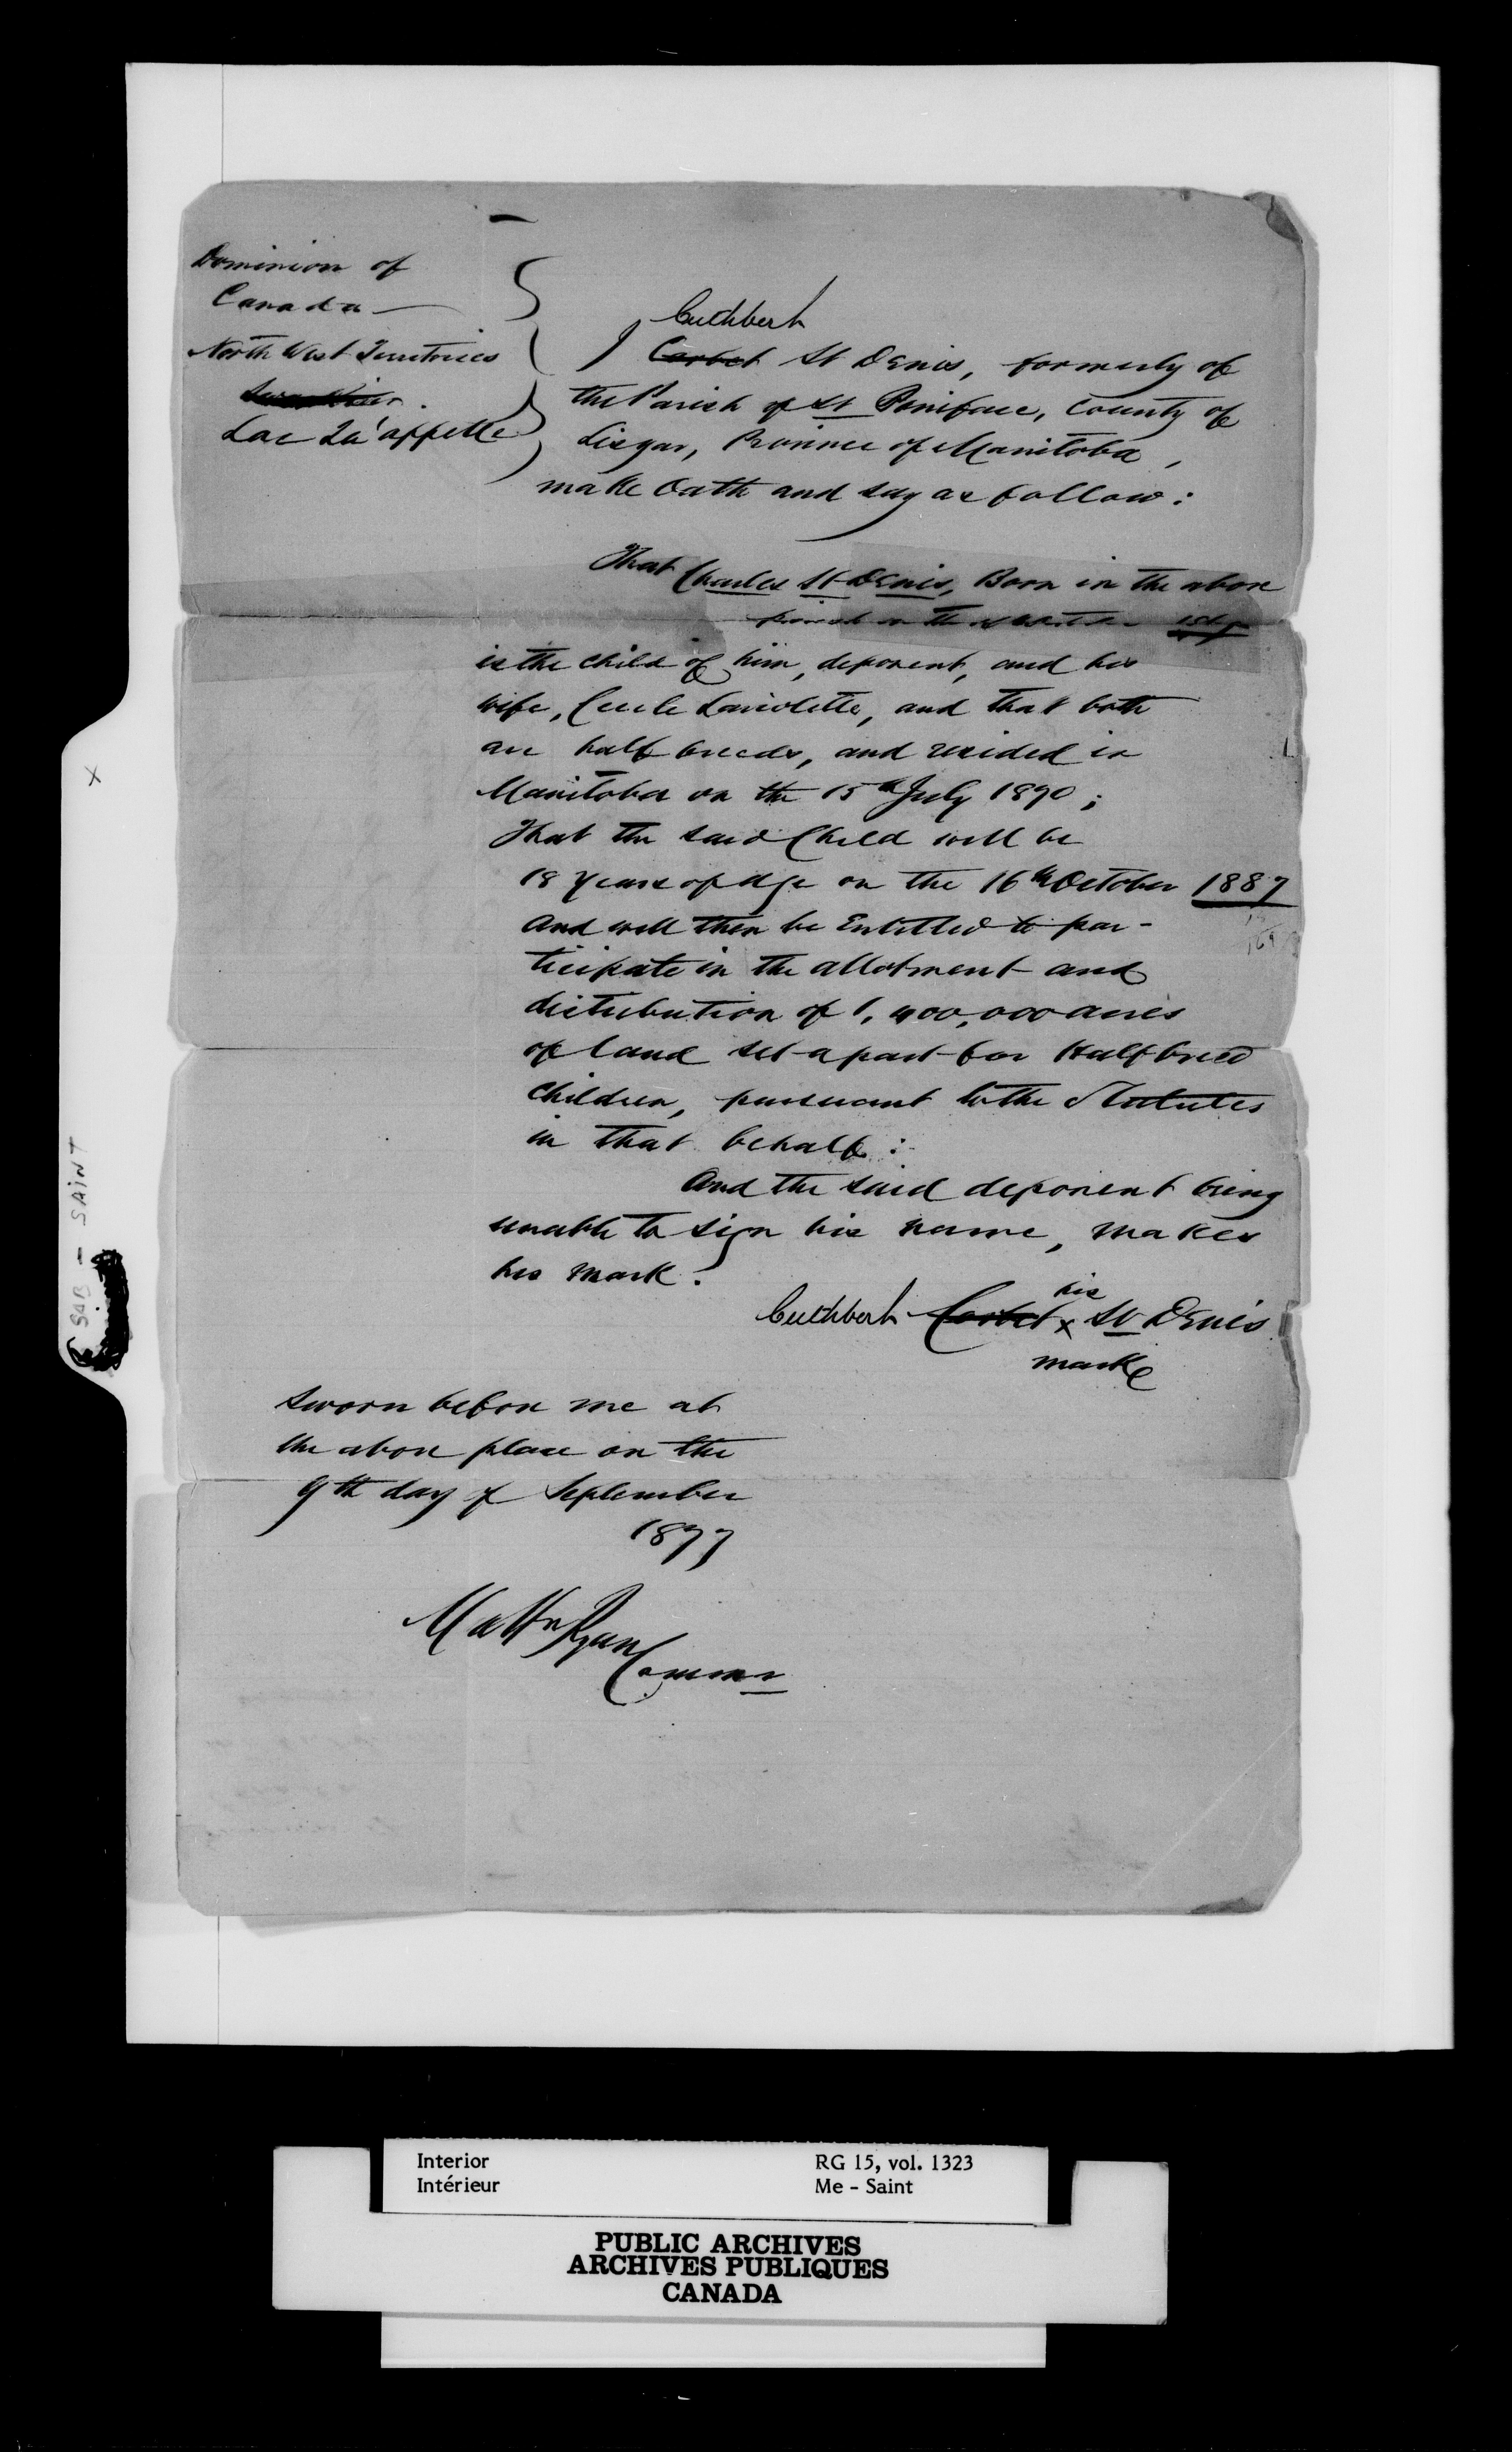 Dominion of
Canada —
North West Territories
Lac Qu'appelle
Cuthbert
I Corbet St Denis, formerly of
the Parish of St Boniface, County of
Lisgar, Province of Manitoba,
make Oath and say as follow:
That Charles St Denis, Born in the above
parish on the
is the child of him, deponent, and his
wife, Cecile Laviolette, and that both
are half breeds, and resided in
Manitoba on the 15th July 1870;
That the said Child will be
18 Years of Age on the 16th October 1887
And will then be Entitled to par-
ticipate in the allotment and
distribution of 1,400,000 acres
of land set apart for Half breed
Children, pursuant to the Statutes
in that behalf:
And the said deponent being
unable to sign his name, makes
his mark.
his
Cuthbert Corbet x St Denis
mark
Sworn before me at
the above place on the
9th day of September
1877
Matthw Ryan
Commr
X
SAB - SAINT
Interior RG 15, vol. 1323
Intérieur Me - Saint
PUBLIC ARCHIVES
ARCHIVES PUBLIQUES
CANADA